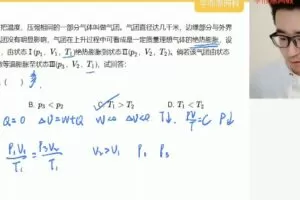 把温度、压强相同的一部分气体叫做气团。气团直径达几千米，边缘部分与外界
团没有明显影响。气团在上升过程中可看成是一定质量理想气体的绝热膨胀，设
，由状态Ⅰ(p₁，V₁，T₁)绝热膨胀到状态Ⅱ(p₂，V₂，T₂)。倘若该气团由状态
等温膨胀至状态Ⅲ(p₃，V₂，T₁)，试回答：
B. p₃ < p₂
C. T₁ > T₂
D. T₁ < T₂
Q=0 ΔU=W+Q W<0 ΔU<0 T↓ PV/T=C P↓
P₁V₁/T₁ = P₃V₂/T₁ V₂>V₁ P₁ P₃